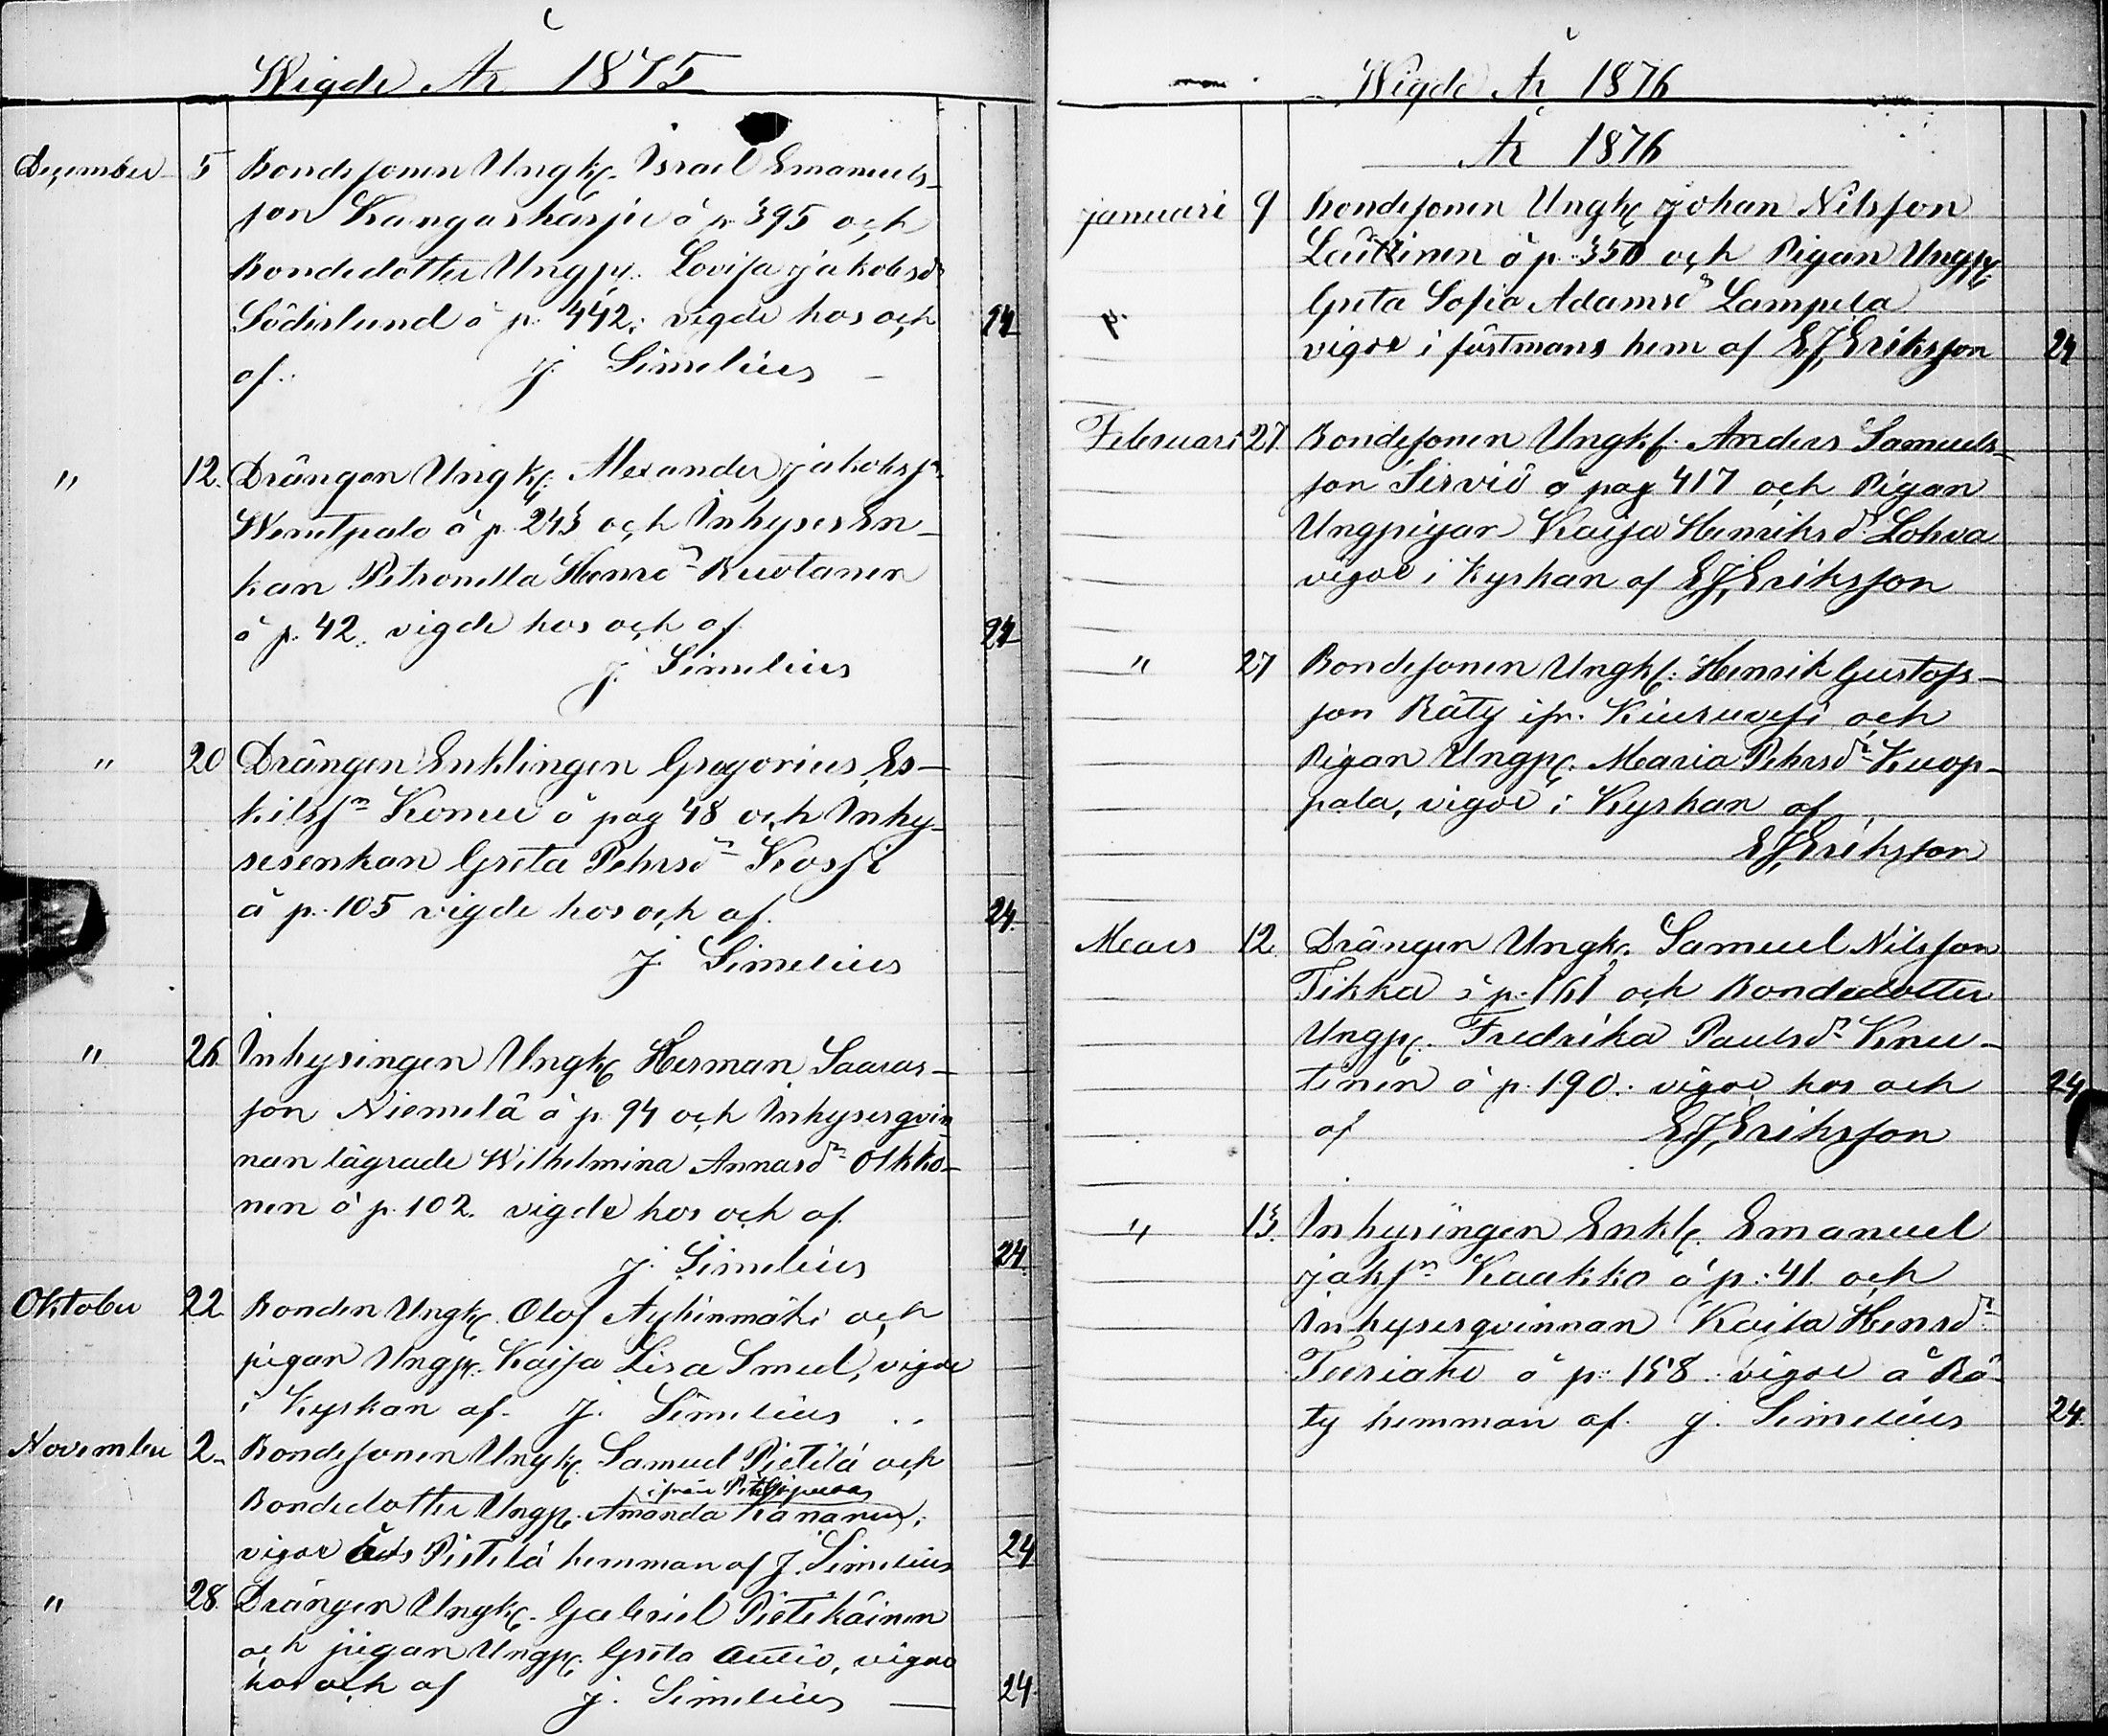 Wigde År 1875
December 5 Bondesonen Ungk. Israel Emanuels-
son Kangasharju å p 395 och
Bondedotter Ungp. Lovisa Jakobsdr
Söderlund å p. 442, vigde hos och 24
af. J. Simelius -
" 12. Drängen Ungk. Alexander Jakobsn
å p 243 och Inhysesen-
kan Petronella Henrdr Ruotanen
å p. 42. vigde hos och af 24
J. Simelius
" 20 Drängen Enklingen Gregorius Es-
kilsn Komu å pag 48 och Inhy-
sesenkan Greta Pehrsdr Koski
å p. 105 vigde hos och af. 24.
J. Simelius
" 26. Inhysingen Ungk Herman Saaras-
son Niemelä å p. 94 och Inhysesqvin
nan lägrade Wilhelmina Annasdr Olkko-
nen å p. 102. vigde hos och af.
J. Simelius 24.
Oktober 22 Bonden Ungk. Olof Nykinmäki och
pigan Ungp. Kaisa Lisa Smul, vigde
i Kyrkan af. J. Simelius ..
November 2. Bondesonen Ungk. Samuel Pietilä och
ifrån
Bondedotter Ungp. Amanda Kananen,
vigde Pietilä hemman af J. Simelius 24
" 28. Drängen Ungk. Gabriel Pietikäinen
och pigan Ungp. Greta Autio, vigde
hos och af J. Simelius - 24.
Wigde År 1876
År 1876
Januari 9 Bondesonen Ungk Johan Nilsson
Leukinen å p. 350 och Pigan Ungp
p. Greta Sofia Adamsdr Lampela
vigde i fästmans hem af E.J. Eriksson 24
Februari 27. Bondesonen Ungk. Anders Samuels-
son Serviö å pag 417 och Pigan
Ungpigan Kaisa Henriksdr Lohva
vigde i Kyrkan af E.J. Eriksson
" 27 Bondesonen Ungk. Henrik Gustafs-
son Räty ifr. Kiuruvesi och
Pigan Ungp. Maria Pehrsdr Kuop-
pala, vigde i Kyrkan af
E.J. Eriksson
Mars 12. Drängen Ungk. Samuel Nilsson
Tikka å p. 161 och Bondedotter
Ungp. Fredrika Paulsdr Knu-
tinen å p. 190. vigde hos och 24
af E.J. Eriksson
" 13. Inhysingen Enkl. Emanuel
Jaksn Kaakko å p. 41 och
Inhysesqvinnan Kaisa Henrsdr
Teeriaho å p. 158. vigde å Rä-
ty hemman af. J. Simelius 24.